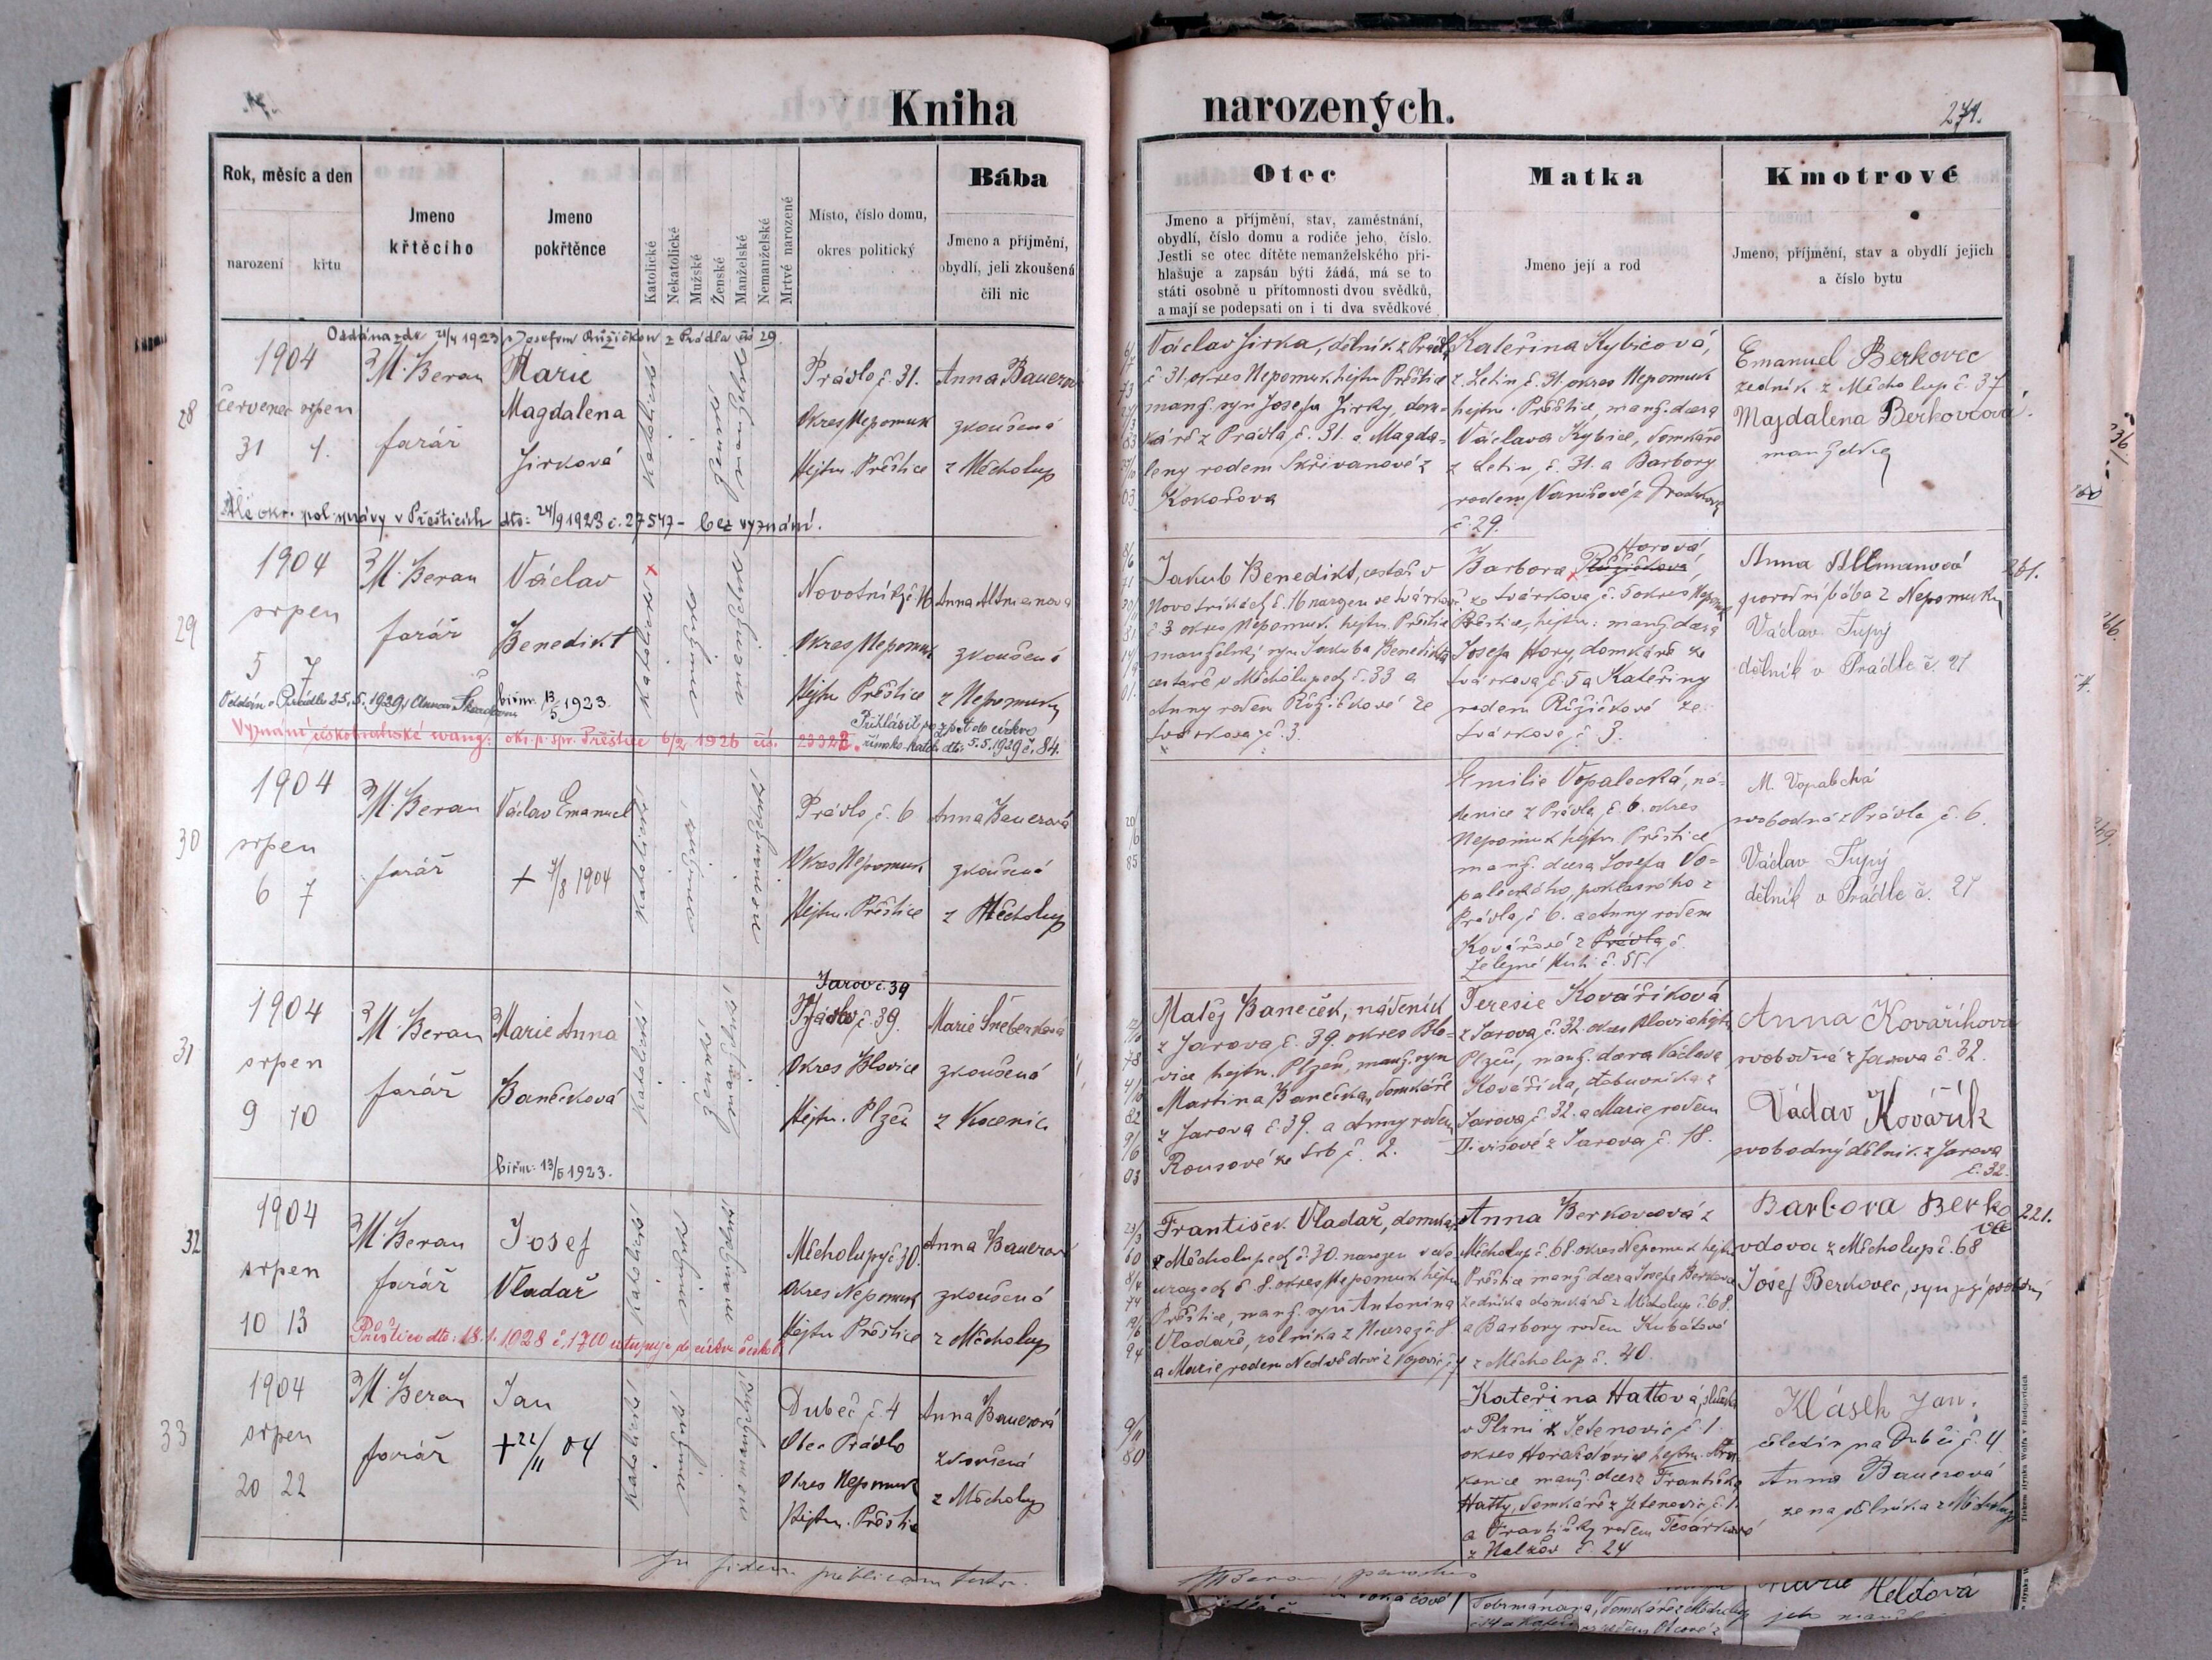 Kniha
narozených.
271.
Rok, měsíc a den
narození
křtu
Jmeno
křtěcího
Jmeno
pokřtěnce
Katolické
Nekatolické
Mužské
Ženské
Manželské
Nemanželské
Mrtvé narozené
Místo, číslo domu,
okres politický
Bába
Jmeno a příjmění,
obydlí, jeli zkoušená
čili nic
Otec
Jmeno a příjmění, stav, zaměstnání,
obydlí, číslo domu a rodiče jeho, číslo.
Jestli se otec dítěte nemanželského při-
hlašuje a zapsán býti žádá, má se to
státi osobně u přítomnosti dvou svědků,
a mají se podepsati on i ti dva svědkové
Matka
Jmeno její a rod
Kmotrové
Jmeno, příjmění, stav a obydlí jejich
a číslo bytu
Oddána zde 21/4 1923 s Josefem Růžičkou z Prádla čís 29.
28
1904
červenec srpen
31 1.
M. Beran
farář
Marie
Magdalena
Jirková
katolické
ženské
manželské
Prádlo č. 31.
Okres Nepomuk
Hejtm. Přeštice
Anna Bauerov
zkoušená
z Měcholup
Václav Jirka, dělník z Prádla
č 31. okres Nepomuk hejtm Přeštice
manž. syn Josefa Jirky, dom-
káře z Prádla, č. 31. a Magda-
leny rodem Skřivanové z
Kokořova
Kateřina Kybicová,
z Letin, č. 31. okres Nepomuk
hejtm. Přeštice, manž. dcera
Václava Kybice, domkáře
z Letin, č. 31. a Barbory
č. 29.
Emanuel Berkovec
zedník z Měcholup č. 37
Majdalena Berkovcová
manželka
okr. pol. správy v Přešticích dto: 24/9 1923 č. 27547 - bez vyznání.
29
1904
srpen
5 7
M. Beran
farář
Václav
Benedikt
biřm. 13/5 1923.
katolické
mužské
manželské
Novotníky č 16
Okres Nepomuk
Hejtm Přeštice
Anna Altmanova
zkoušená
z Nepomuku
Jakub Benedikt, cestář v
Novotníkách č. 16 narozen ve Tvárkově
č 3 okres Nepomuk hejtm. Přeštice
manželský syn Jakuba Benedikta
cestáře v Měcholupech č. 33 a
Anny rodem Růžičkové ze
Tvárkova č. 3.
Barbora Růžičkova
Horová,
ze Tvárkova, č. 5 okres Nepomuk
Přeštice, hejtm: manž. dcera
Josefa Hory, domkáře ze
Tvárkova č. 5 a Kateřiny
rodem Růžičkové ze
Tvárkova, č 3.
Anna Altmanová
porodní bába z Nepomuku
Václav Tupý
dělník v Prádle č 27
261.
Přihlásil se zpět do církve
římsko-katol. dto: 5.5.1929 č. 84.
Vyznání českobratrské evang: okr. p. spr. Přeštice 6/2 1926 čís. 23322.
30
1904
srpen
6 7
M. Beran
farář
Václav Emanuel
+ 7/8 1904
katolické
mužské
nemanželské
Prádlo, č. 6
Okres Nepomuk
Hejtm. Přeštice
Anna Bauerová
zkoušená
z Měcholup
Emilie Vopalecká, ná-
denice z Prádla, č 6. okres
Nepomuk hejtm Přeštice
manž. dcera Josefa Vo-
paleckého, poklasného z
Prádla, č 6. a Anny rodem
Kovářové z Prádla, č.
Železné Huti č. 51.
svobodná z Prádla č. 6.
Václav Tupý
dělník v Prádle č. 27
31
1904
srpen
9 10
M. Beran
farář
Marie Anna
Banečková
biřm: 13/5 1923.
katolické
ženské
manželské
Jarov č. 39
č. 39.
Okres Blovice
Hejtm. Plzeň
zkoušená
z Kocenic
Matěj Baneček, nádeník
z Jarova č. 39. okres Blo-
vice hejtm. Plzeň, manž. syn
Martina Banečka, domkáře
z Jarova č 39. a Anny rodem
Rousové ze Srb č. 2.
Teresie Kovaříková
z Jarova, č. 32. okres Blovice hejtm
Plzeň, manž. dcera Václava
Kováříka, z
Jarova, č. 32. a Marie rodem
Divišové z Jarova č. 18.
Anna Kovaříkova
svobodná z Jarova č. 32.
Václav Kovářík
svobodný dělník z Jarova
č. 32.
32
1904
srpen
10 13
M. Beran
farář
Josef
Vladař
katolické
mužské
manželské
Měcholupy č 30.
Okres Nepomuk
Hejtm Přeštice
Anna Bauerov
zkoušená
z Měcholup
František Vladař, domkář
z Měcholupech č. 30. narozen v Neu-
razech č 8. okres Nepomuk hejtm
Přeštice, manž. syn Antonína
Vladaře, rolníka z Neuraz č 8.
a Marie rodem Nedvědové z
Anna Berkovcová z
Měcholup č. 68. okres Nepomuk hejtm
Přeštice manž dcera Josefa Berkovce
zedníka domkáře z Měcholup č. 68.
a Barbory rodem Kubátové
z Měcholup č. 40.
Barbora Berko
vdova z Měcholup č. 68
Josef Berkovec, syn její
221.
Přeštice dto: 18.1.1928 č. 1700 vstupuje do církve českobr.
33
1904
srpen
20 22
M. Beran
farář
Jan
+ 22/11 04
katolické
mužské
nemanželské
Dubeč č. 4
Obec Prádlo
Okres Nepomuk
Hejtm. Přeštic
Anna Bauerová
zkoušená
z Měcholup
Kateřina Hattová, služka
v Plzni z Jetenovic č 1.
okres Horažďovice hejtm. Stra-
konice manž. dcera Františka
Hatty, domkáře z Jetenovic, č. 1.
a Františky rodem Tesárkové
z Nalžov č. 24
Klásek Jan.
čeledín na Dubči č. 4
Anna Bauerová
žena dělníka z Měcholup
In fidem publicam testor.
M Beran, parochus
Heldová